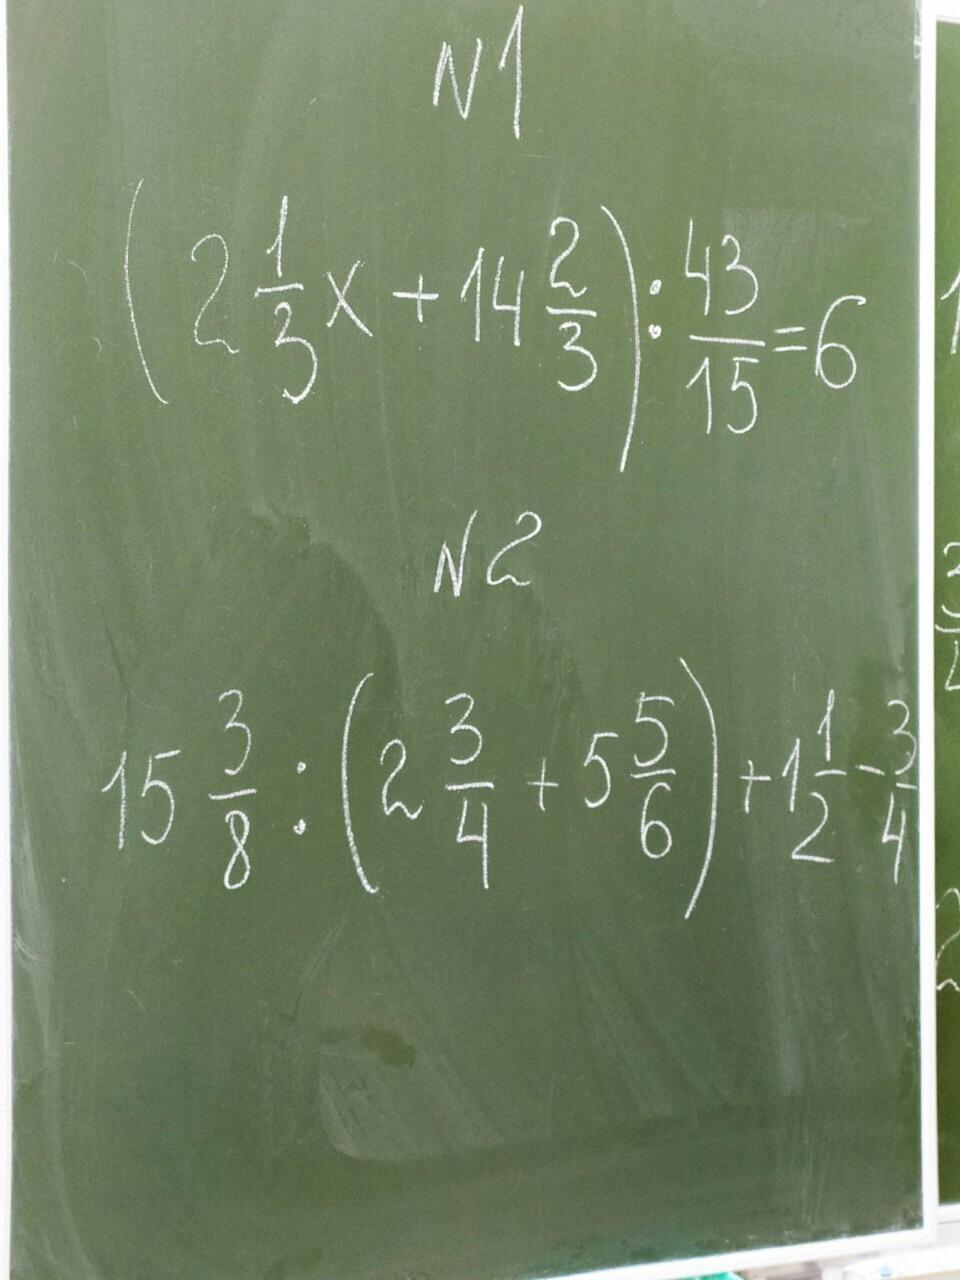 N1
(2 1/3 x + 14 2/3) : 43/15 = 6
N2
15 3/8 : (2 3/4 + 5 5/6) + 1 1/2 - 3/4